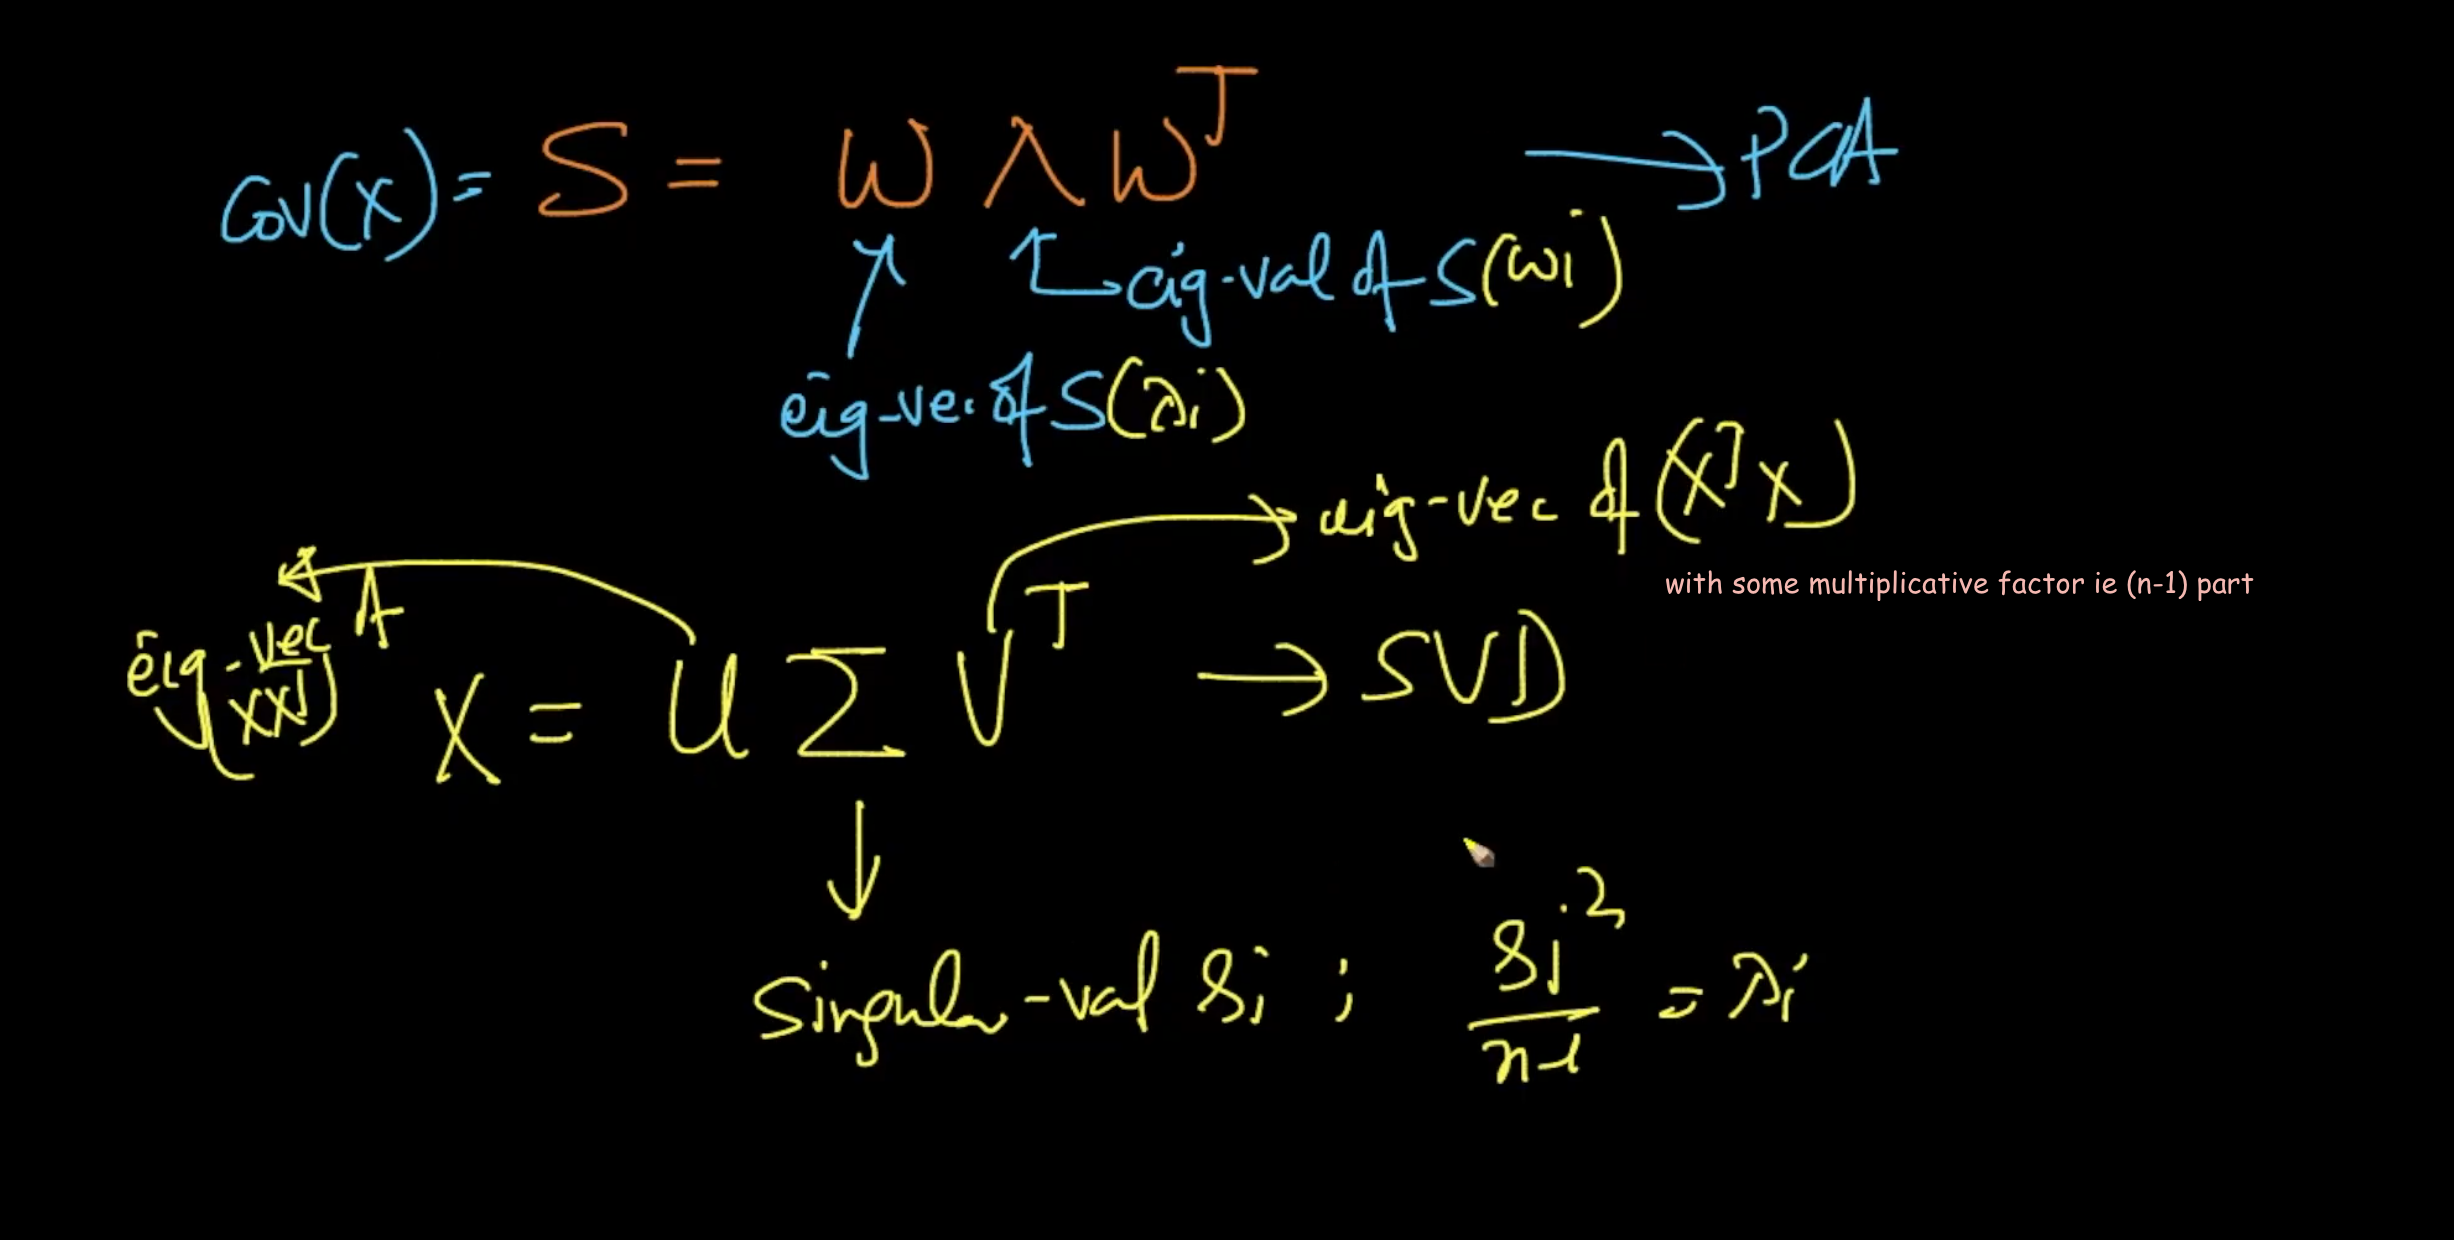 Cov(X) = S = W Λ W^T → PCA
eig-val of S (wi)
eig-vec of S (λi)
eig-vec of (X^T X)
with some multiplicative factor ie (n-1) part
eig-vec of (XX^T)
X = U Σ V^T → SVD
Singular-val si ; si^2 / n-1 = λi